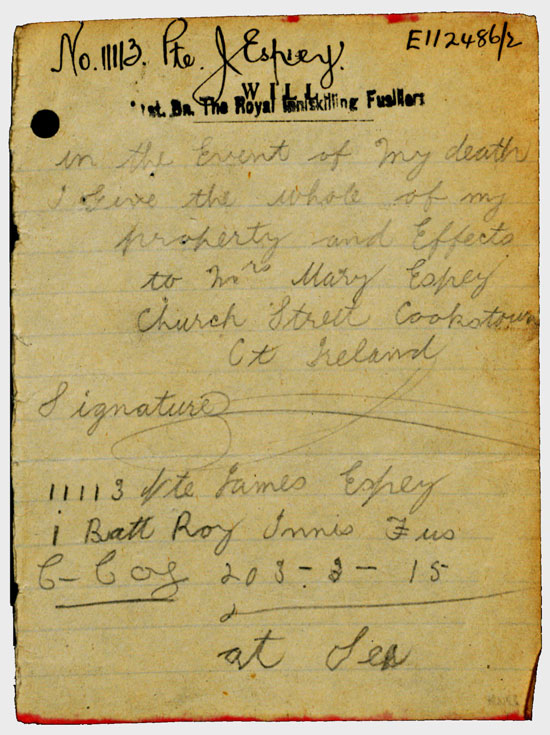 No. 11113. Pte. J Espey.
E112486/2
WILL
1st. Bn. The Royal Inniskilling Fusiliers
in the Event of My death
I Give the whole of my
property and Effects
to Mrs Mary Espey
Church Street Cookstown
Ct Ireland
Signature
11113 Pte James Espey
1 Batt Roy Innis Fus
C- Coy 203-3-15
at Sea